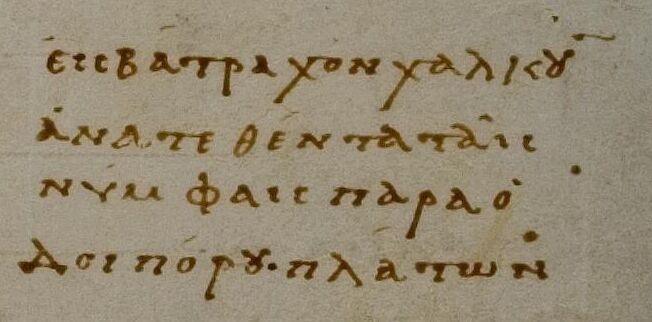 εἰς βάτραχον χαλκοῦν
ἀνατεθέντα ταῖς
νύμφαις παρὰ ὁ
δοιπόρου· πλάτων